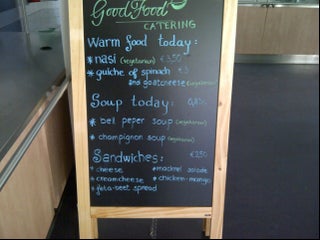 Good Food
CATERING
Warm food today:
* nasi (vegetarian) €3,50
* quiche of spinach €3
and goatcheese (vegetarian)
Soup today:
* bell peper soup (vegetarian)
* champignon soup (vegetarian)
Sandwiches: €2,50
* cheese * mackrel salade
* creamcheese * chicken-mango
* feta-beet spread